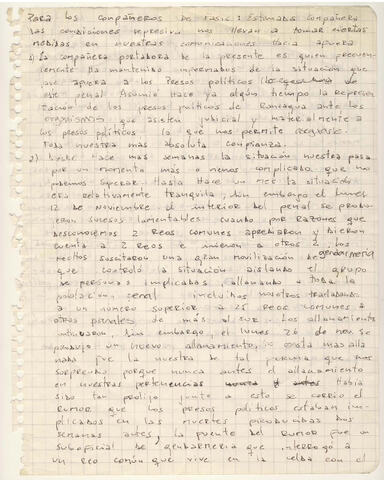 Para los compañeros de Fasic: Estimados compañeros
las condiciones represivas nos llevan a tomar ciertas
medidas en nuestras comunicaciones hacia afuera
1) La compañera portadora de la presente es quien
ha mantenido informados de la situación que
a los presos políticos
este penal Asumió hace ya algún tiempo la represen
tación de los presos políticos de Rancagua ante los
organismos que asisten judicial y materialmente a
los presos políticos lo que nos permite
toda nuestra más absoluta confianza.
2) Desde hace mas semanas la situación nuestra pasa
por un momento más o menos complicado que no
podemos superar. Hasta hace un mes la situación
era relativamente tranquila. Sin embargo el lunes
12 de Noviembre al interior del penal se produ
jeron sucesos lamentables cuando por razones que
desconocemos 2 reos comunes apedrearon y dieron
cuenta a 2 reos e hirieron a otros 2. Los
hechos suscitaron una gran movilización de gendarmería
que controló la situación aislando el grupo
de personas implicadas, allanando a toda la
población penal incluidos nosotros trasladando
a un número superior a 25 reos comunes a
otros penales de más al sur. Los allanamientos
continuaron. Sin embargo, el lunes 26 de nov. se
produjo un nuevo allanamiento, esta más allá
nada fue la nuestra de tal forma que nos
sorprendió porque nunca antes el allanamiento
en nuestras pertenencias había
sido tan prolijo junto a esto se corrió el
rumor que los presos políticos estaban im
plicados en las muertes producidas dos
semanas antes, la fuente del rumor fue un
suboficial de gendarmería que interrogó a
un reo común que vive en la celda con el